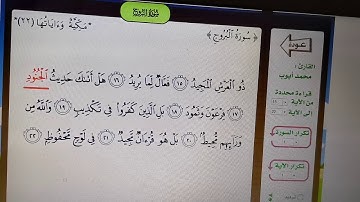 سورة البروج
*مَكِّيَّة وَءَايَاتُهَا (٢٢)*
﴿سُورَةُ الْبُرُوجِ﴾
ذُو الْعَرْشِ الْمَجِيدُ ﴿١٥﴾ فَعَّالٌ لِّمَا يُرِيدُ ﴿١٦﴾ هَلْ أَتَىٰكَ حَدِيثُ الْجُنُودِ
﴿١٧﴾ فِرْعَوْنَ وَثَمُودَ ﴿١٨﴾ بَلِ الَّذِينَ كَفَرُوا۟ فِى تَكْذِيبٍ ﴿١٩﴾ وَاللَّهُ مِن
وَرَآئِهِم مُّحِيطٌۢ ﴿٢٠﴾ بَلْ هُوَ قُرْءَانٌ مَّجِيدٌ ﴿٢١﴾ فِى لَوْحٍ مَّحْفُوظٍۭ ﴿٢٢﴾
عودة
القارئ :
محمد أيوب
قراءة محددة
من الآية
إلى الآية
تكرار السورة
تكرار الآية